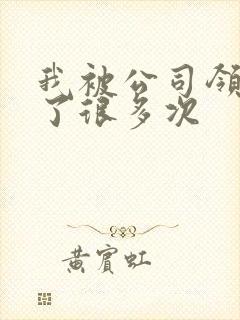 我被公司领
了很多次
黄宾虹